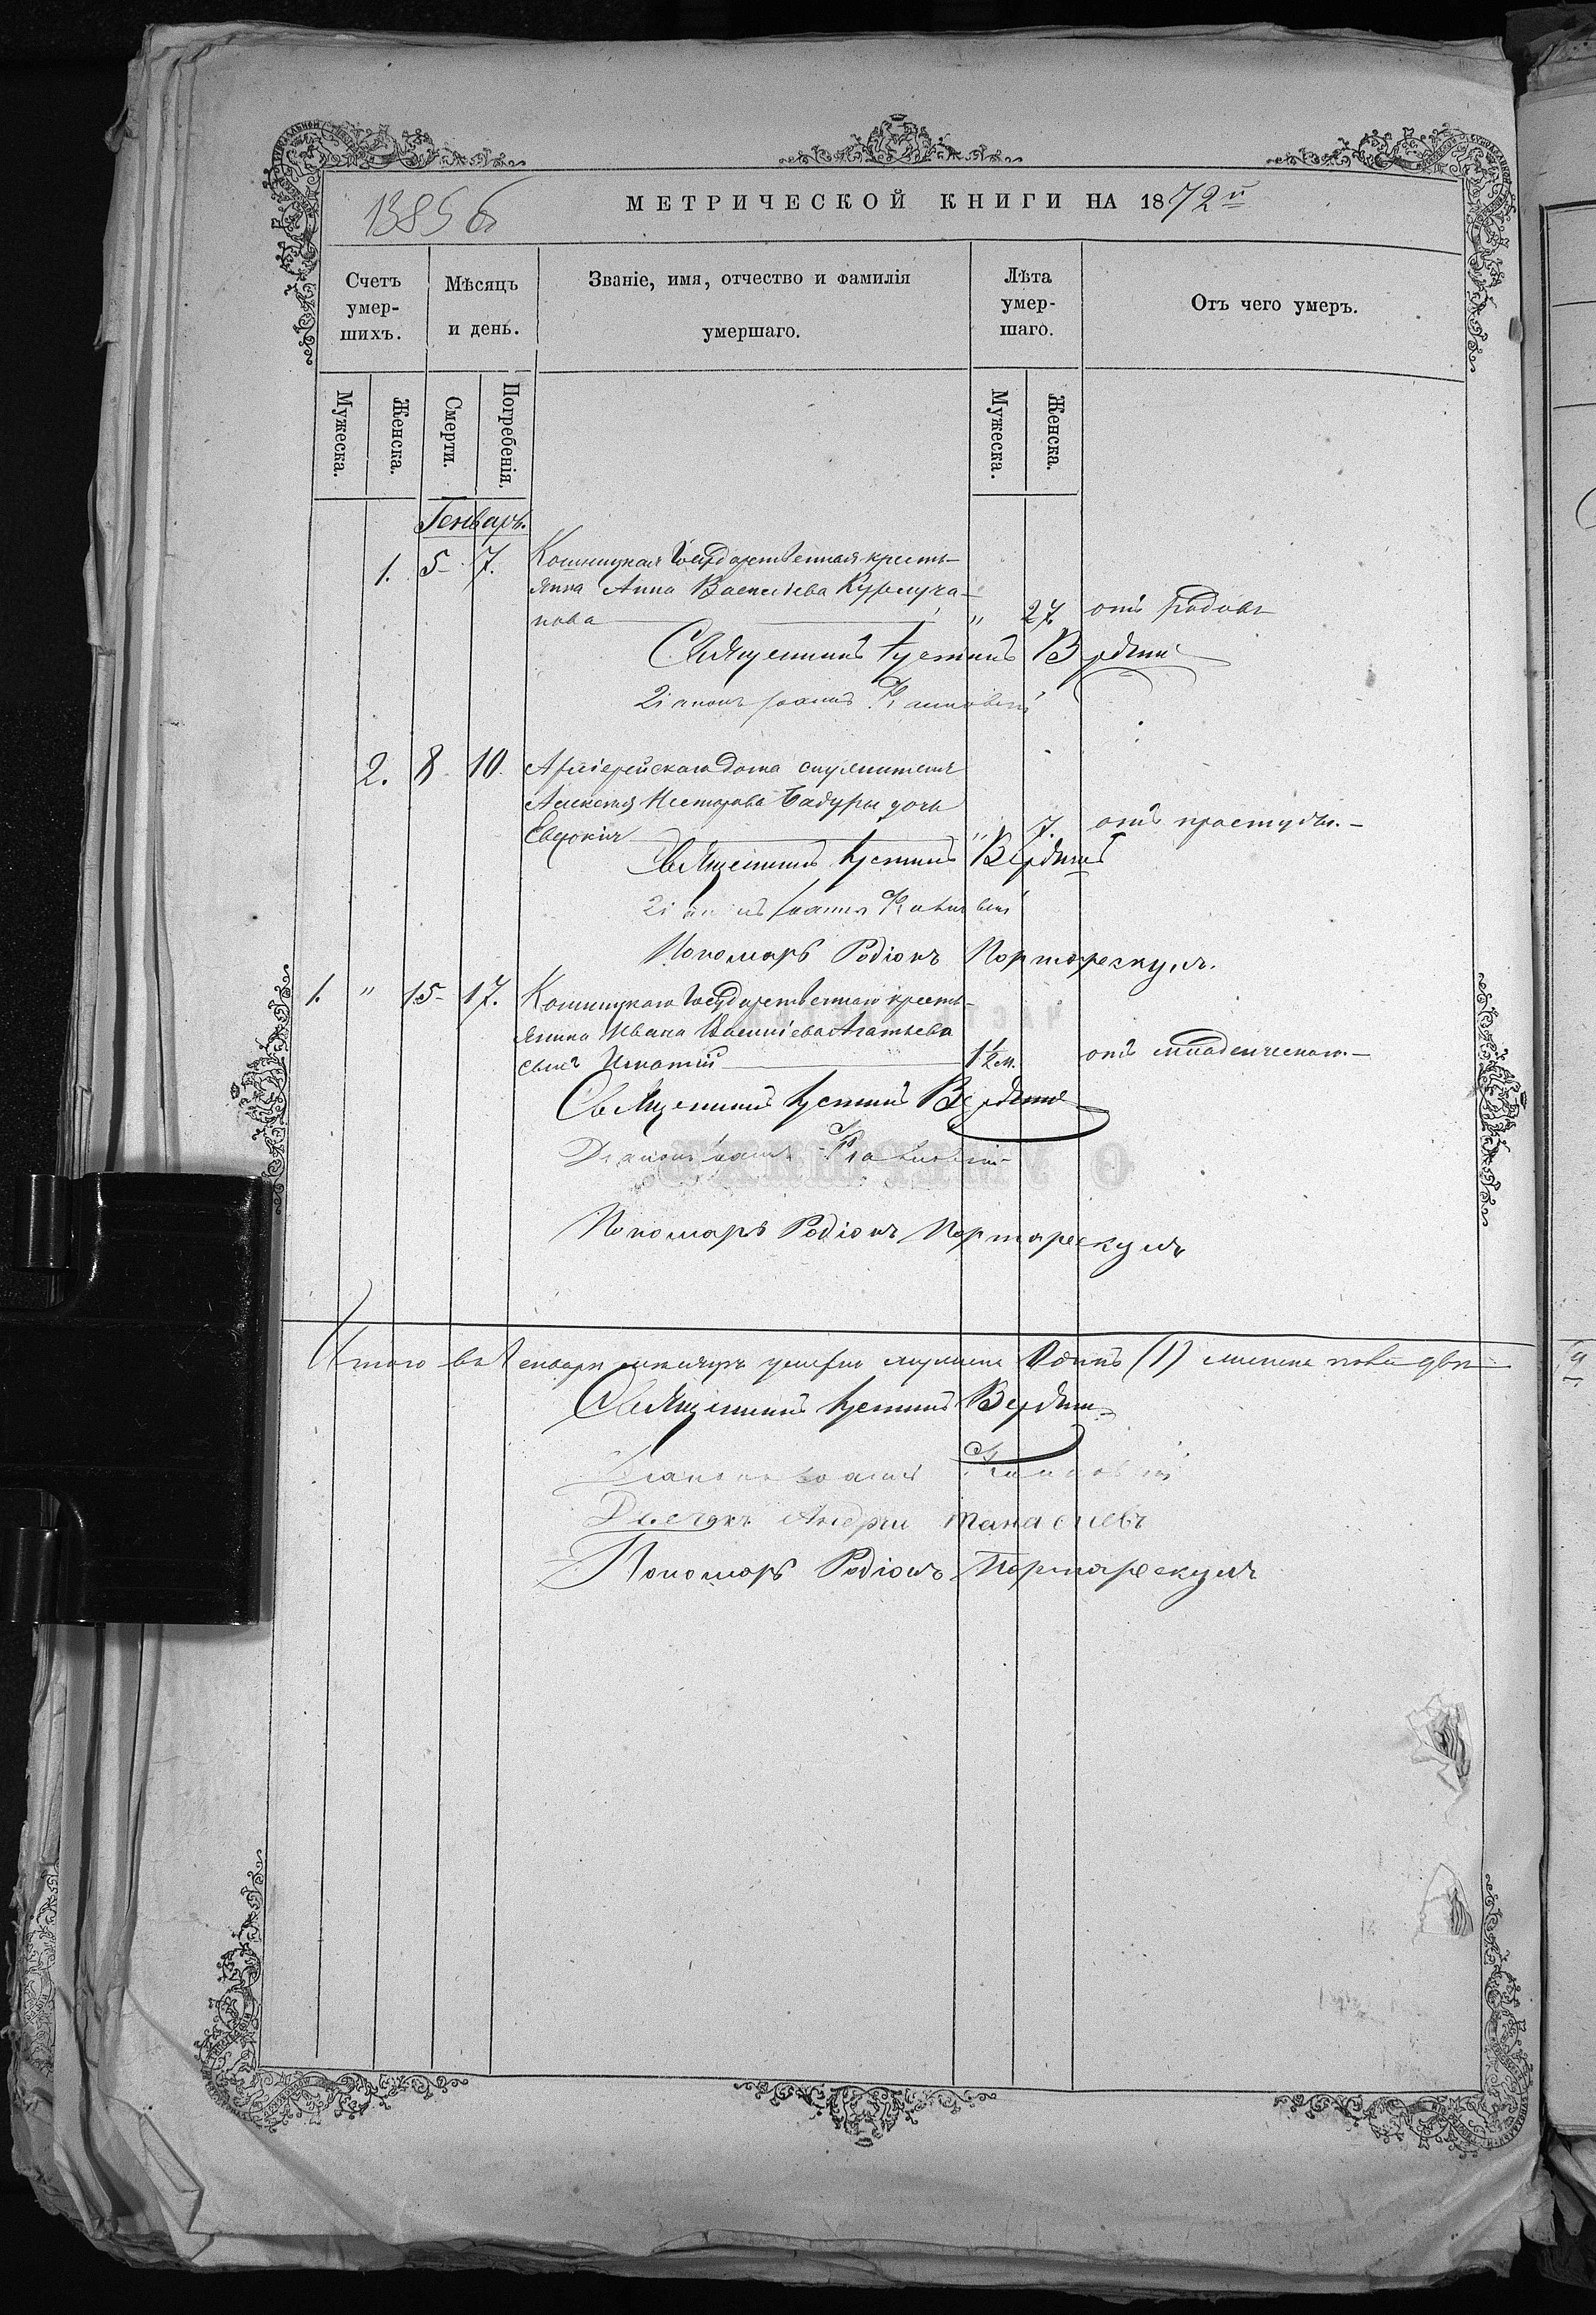 1385 б
МЕТРИЧЕСКОЙ КНИГИ НА 1872й
Счетъ умершихъ.
Мѣсяцъ и день.
Званіе, имя, отчество и фамилія умершаго.
Лѣта умершаго.
Отъ чего умеръ.
Мужеска.
Женска.
Смерти.
Погребенія.
Мужеска.
Женска.
Генварь.
1. 5 7. Государственная кресть-
янка Анна Васильева
нова " 27. отъ родовъ
Священникъ
Діаконъ Іоаннъ
2. 8 10. Архіерейскаго дома служителя
Алексея Несторова Бадуры дочь
Евдокія " 7. отъ простуды.
Священникъ
Діаконъ Іоаннъ
Пономарь Родіонъ Портарескулъ.
1. " 15 17. Государственнаго кресть-
янина Ивана
сынъ Игнатій 1½ м. отъ младенческой.
Священникъ
Діаконъ Іоаннъ
Пономарь Родіонъ Портарескулъ
Итого въ Генваре месяце умерло мужеска Одинъ (1) женска пола две
Священникъ
Діаконъ Іоаннъ
Дьячокъ Андрей Танасиевъ
Пономарь Родіонъ Портарескулъ